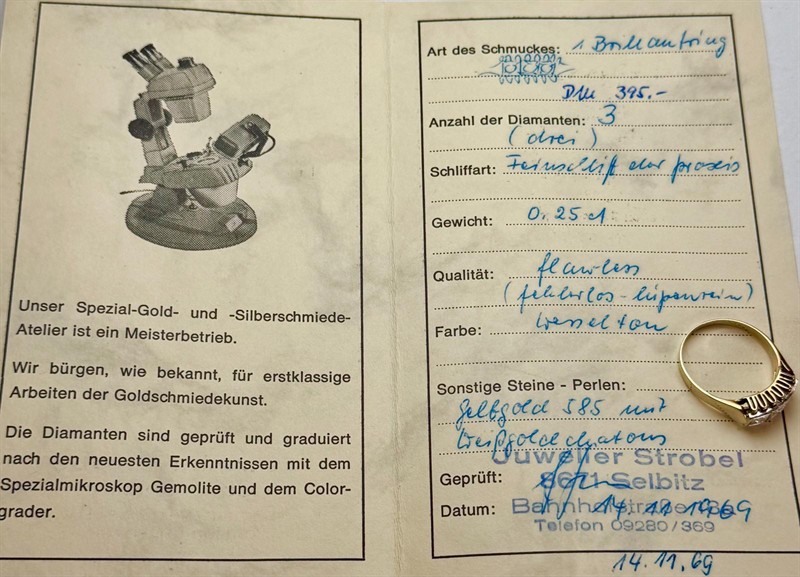 Unser Spezial-Gold- und -Silberschmiede-
Atelier ist ein Meisterbetrieb.
Wir bürgen, wie bekannt, für erstklassige
Arbeiten der Goldschmiedekunst.
Die Diamanten sind geprüft und graduiert
nach den neuesten Erkenntnissen mit dem
Spezialmikroskop Gemolite und dem Color-
grader.
Art des Schmuckes: 1 Brillantring
DM 395.-
Anzahl der Diamanten: 3
(drei)
Schliffart: Feinschliff der praxis
Gewicht: 0.25 ct
Qualität: flawless
(fehlerlos-lupenrein)
Farbe: Wesselton
Sonstige Steine - Perlen:
Gelbgold 585 mit
Weißgoldchatons
Juwelier Strobel
Geprüft: 8671 Selbitz
Datum: 14.11.1969
Telefon 09280/369
14.11.69